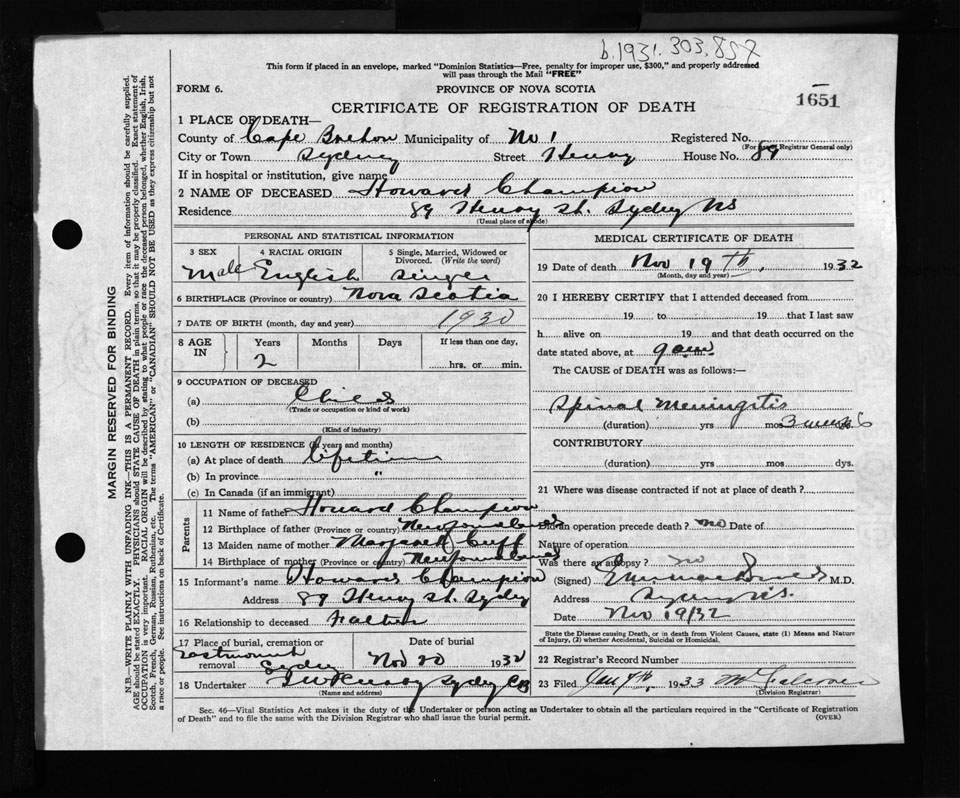 b.1931.303.857
This form if placed in an envelope, marked "Dominion Statistics—Free, penalty for improper use, $300," and properly addressed
will pass through the Mail "FREE"
FORM 6.
PROVINCE OF NOVA SCOTIA
CERTIFICATE OF REGISTRATION OF DEATH
1651
1 PLACE OF DEATH—
County of Cape Breton Municipality of No 1 Registered No.
(For Registrar General only)
City or Town Sydney Street Henry House No. 89
If in hospital or institution, give name
2 NAME OF DECEASED Howard Champion
Residence 89 Henry St. Sydney NS
(Usual place of abode)
PERSONAL AND STATISTICAL INFORMATION
3 SEX Male
4 RACIAL ORIGIN English
5 Single, Married, Widowed or Divorced. (Write the word) Single
6 BIRTHPLACE (Province or country) Nova Scotia
7 DATE OF BIRTH (month, day and year) 1930
8 AGE IN Years 2 Months Days If less than one day, hrs. or min.
9 OCCUPATION OF DECEASED
(a) Child
(Trade or occupation or kind of work)
(b)
(Kind of industry)
10 LENGTH OF RESIDENCE (in years and months)
(a) At place of death Lifetime
(b) In province "
(c) In Canada (if an immigrant)
Parents
11 Name of father Howard Champion
12 Birthplace of father (Province or country) Newfoundland
13 Maiden name of mother Margaret Cuff
14 Birthplace of mother (Province or country) Newfoundland
15 Informant's name Howard Champion
Address 89 Henry St. Sydney
16 Relationship to deceased Father
17 Place of burial, cremation or removal Eastmount Sydney
Date of burial Nov 20 1932
18 Undertaker Sydney CB
(Name and address)
MEDICAL CERTIFICATE OF DEATH
19 Date of death Nov 19th, 1932
(Month, day and year)
20 I HEREBY CERTIFY that I attended deceased from
19 to 19 that I last saw
h alive on 19 and that death occurred on the
date stated above, at 9 am
The CAUSE of DEATH was as follows:—
Spinal Meningitis
(duration) yrs mos 3 weeks
CONTRIBUTORY
(duration) yrs. mos. dys.
21 Where was disease contracted if not at place of death?
Did an operation precede death? no Date of
Nature of operation
Was there an autopsy? no
(Signed) M.D.
Address Sydney N.S.
Date Nov 19/32
State the Disease causing Death, or in death from Violent Causes, state (1) Means and Nature
of Injury, (2) whether Accidental, Suicidal or Homicidal.
22 Registrar's Record Number
23 Filed Jan 7th, 1933
(Division Registrar)
Sec. 46—Vital Statistics Act makes it the duty of the Undertaker or person acting as Undertaker to obtain all the particulars required in the "Certificate of Registration
of Death" and to file the same with the Division Registrar who shall issue the burial permit.
(OVER)
MARGIN RESERVED FOR BINDING
N.B.—WRITE PLAINLY WITH UNFADING INK—THIS IS A PERMANENT RECORD. Every item of information should be carefully supplied.
AGE should be stated EXACTLY. PHYSICIANS should STATE CAUSE OF DEATH in plain terms, so that it may be properly classified. Exact statement of
OCCUPATION is very important. RACIAL ORIGIN will be described by stating to what people or race the deceased person belonged, whether English, Irish,
Scotch, French, German, Russian, Ruthenian, etc. The terms "AMERICAN" or "CANADIAN" SHOULD NOT BE USED as they express citizenship but not
a race or people. See instructions on back of Certificate.